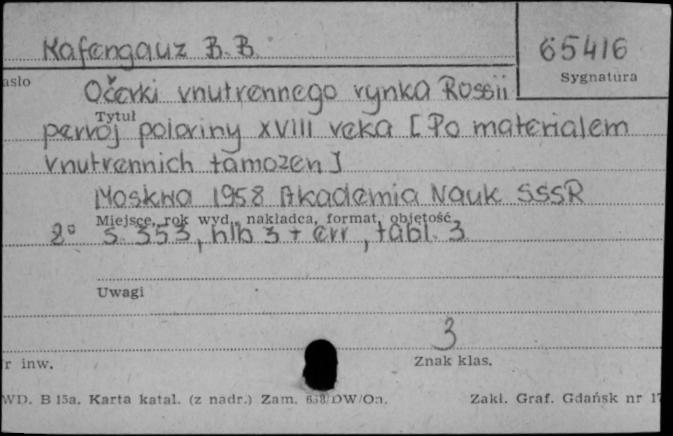 Kafengauz B. B.
65416
asło
Sygnatura
Očerki vnutrennego rynka Rossii
Tytuł
pervoj poloviny XVIII veka [Po materialem
vnutrennich tamożen]
Moskwa 1958 Akademia Nauk SSSR
Miejsce, rok wyd., nakładca, format, objętość
8° s. 353, nlb 3 + err, tabl. 3
Uwagi
3
r inw.
Znak klas.
WD. B 15a. Karta katal. (z nadr.) Zam. 638/DW/Oa.
Zakł. Graf. Gdańsk nr 17